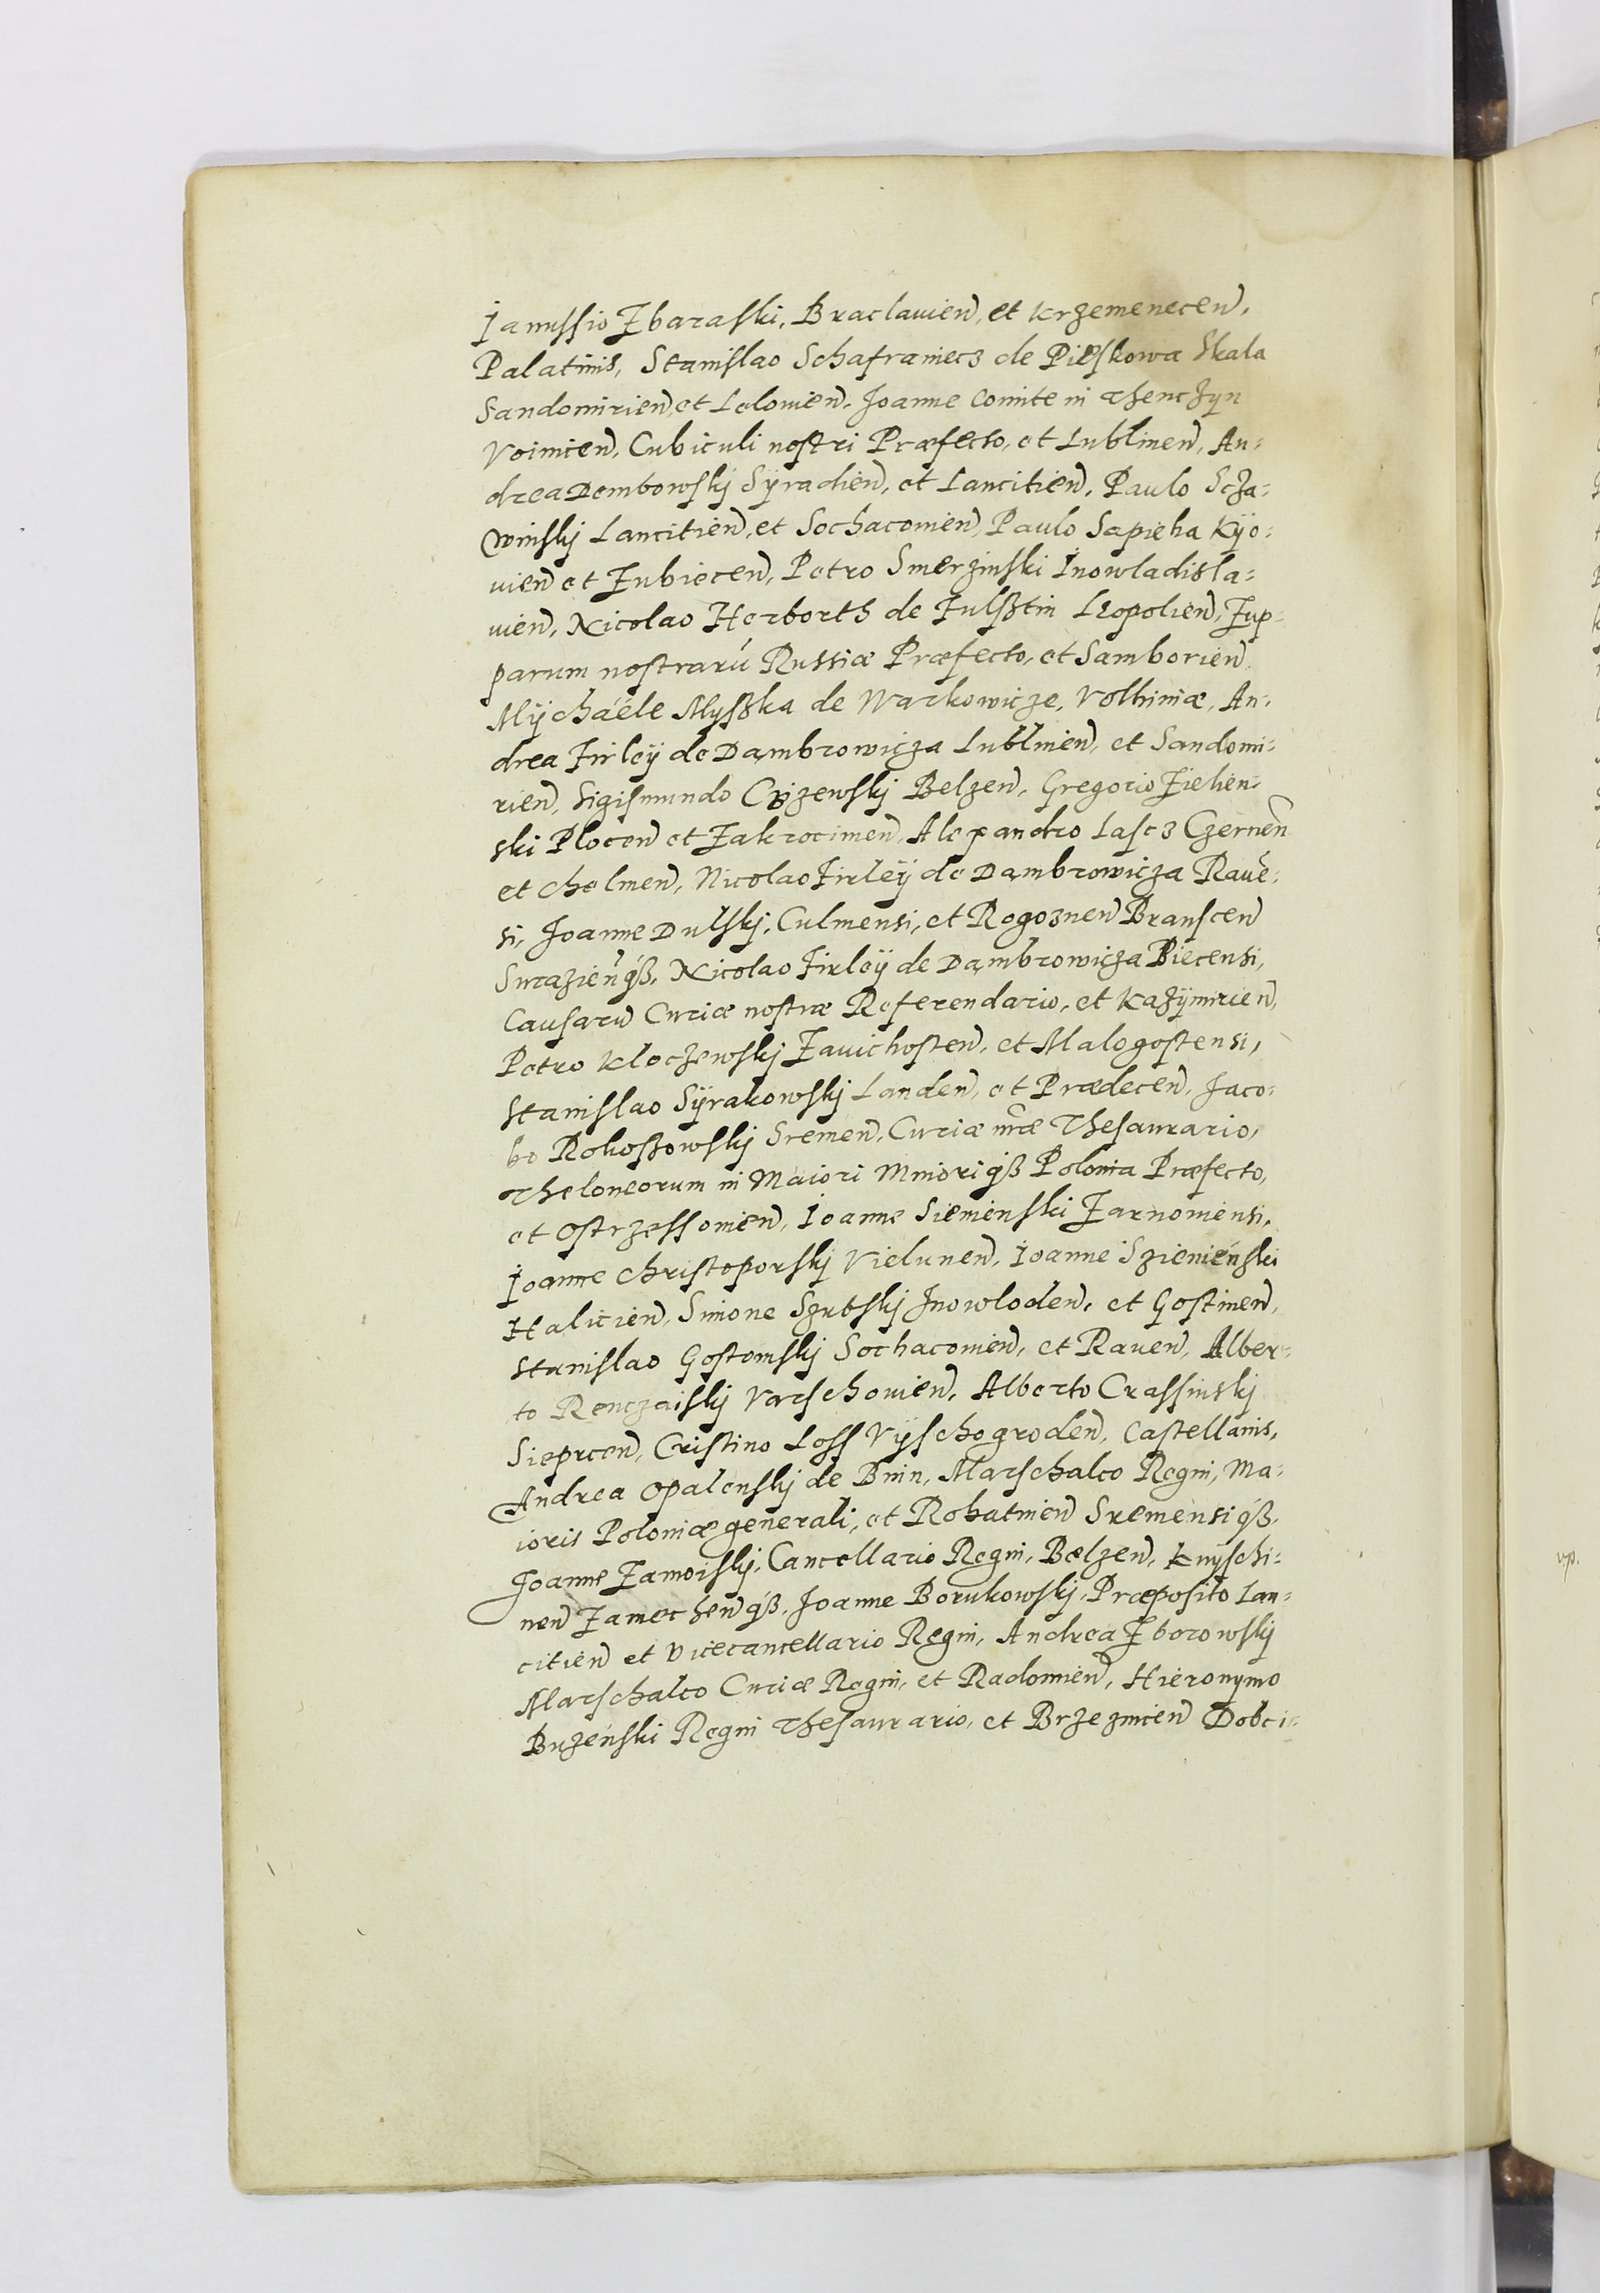 Janussio Zbaraski, Braclauien, et Krzemenecen,
Palatinis, Stanislao Schafraniecz de Pieskowa Skala
Sandomirien, et Lelouien, Joanne Comite in Thenczyn
Voinicen, Cubiculi nostri Præfecto, et Lublinen, An-
drea Dembowskj Sÿradien, et Lancitien, Paulo Scza-
winskj Lancitien, et Sochacouien, Paulo Sapieha Kÿo-
uien et Lubiecen, Petro Smerzinski Inowladisla-
uien, Nicolao Herborth de Fulßtin Leopolien, Zup-
parum nostrarũ Russiæ Præfecto, et Samborien,
Mÿchaéle Myßka de Warkowicze, Volhiniæ, An-
drea Firleÿ de Dambrowicza Lublinen, et Sandomi-
rien, Sigismundo Czizewskj Belzen, Gregorio Zielien-
ski Plocen et Zakrocimen, Alexandro Lascz Czernen
et Chelmen, Nicolao Firleÿ de Dambrowicza Rauẽ-
si, Joanne Dulskj, Culmensi, et Rogoznen Branscen
Surazienqß, Nicolao Firleÿ de Dambrowicza Biecensi,
Causarũ Curiæ nostræ Referendario, et Kazÿmirien,
Petro Kloczewskj Zauichosten, et Malogostensi,
Stanislao Sÿrakowskj Landen, et Prædecen, Jaco-
bo Rokoßowskj Sremen, Curiæ nræ Thesaurario,
Theloneorum in Maiori Minoriqß Polonia Præfecto,
et Ostrzessouien, Ioanne Siemienski Zarnouiensi,
Joanne Christoporskj Vielunen, Ioanne Szienieński
Halicien, Simone Szubskj Inowloden, et Gostinen,
Stanislao Gostomskj Sochacouien, et Rauen, Alber-
to Renczaiskj Varschouien, Alberto Crassinskj
Sieprcen, Cristino Loss Vÿschogroden, Castellanis,
Andrea Opalenskj de Bnin, Marschalco Regni, Ma-
ioris Poloniæ generali, et Rohatinen Sremensiqß,
Joanne Zamoiskj, Cancellario Regni, Belzen, Knÿschi-
nen Zamechenqß, Joanne Borukowskj, Præposito Lan-
citien et Vicecancellario Regni, Andrea Zborowskj
Marschalco Curiæ Regni, et Radomien, Hieronymo
Buzeński Regni Thesaurario, et Brzeznicen Dobci-